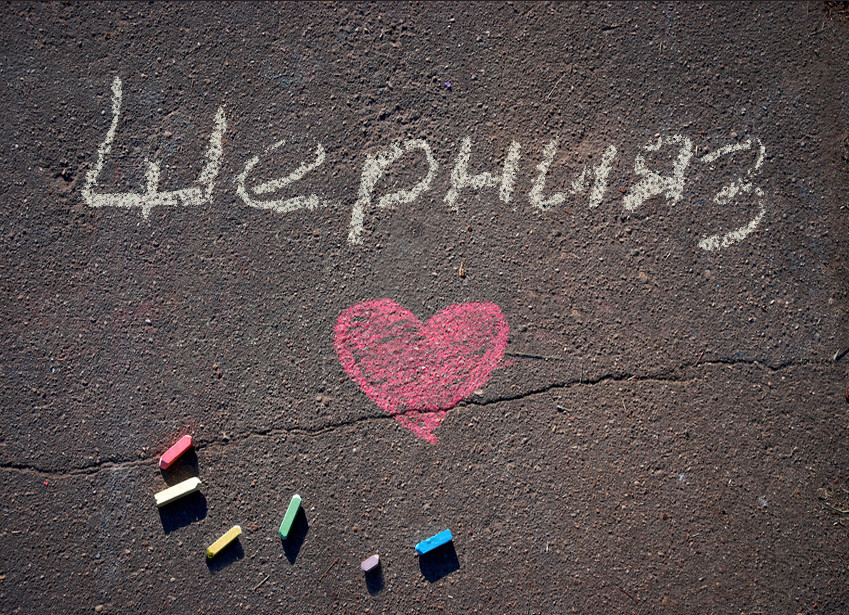 Шернияз